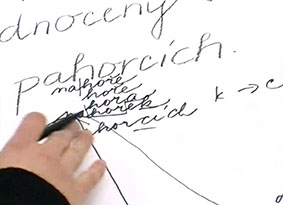 dnoceny
pahorcích.
nahoře
hoře
hora
pahorek,
k → c
horcích